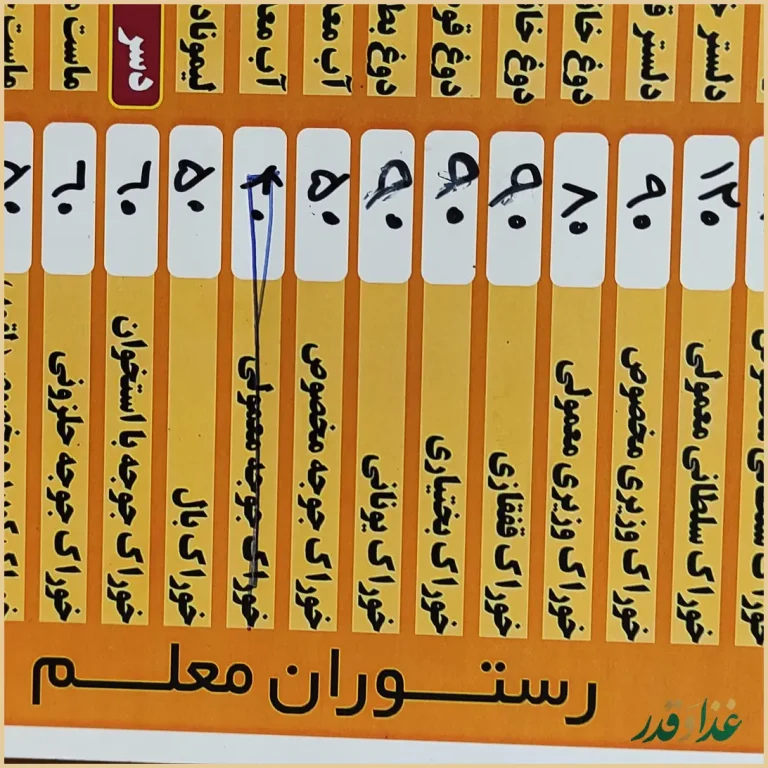 رستوران معلم
خوراک سلطانی معمولی ۱۲۰
خوراک وزیری مخصوص ۹۰
خوراک وزیری معمولی ۸۰
خوراک قفقازی ۹۰
خوراک بختیاری ۹۰
خوراک یونانی ۹۰
خوراک جوجه مخصوص ۵۰
خوراک جوجه معمولی ۴۰
خوراک بال ۵۰
خوراک جوجه با استخوان ۶۰
خوراک جوجه حلزونی ۶۰
دلستر
دلستر
دوغ
دوغ
دوغ
دوغ
آب
آب
لیموناد
دسر
ماست
ماست
غذا و قدر